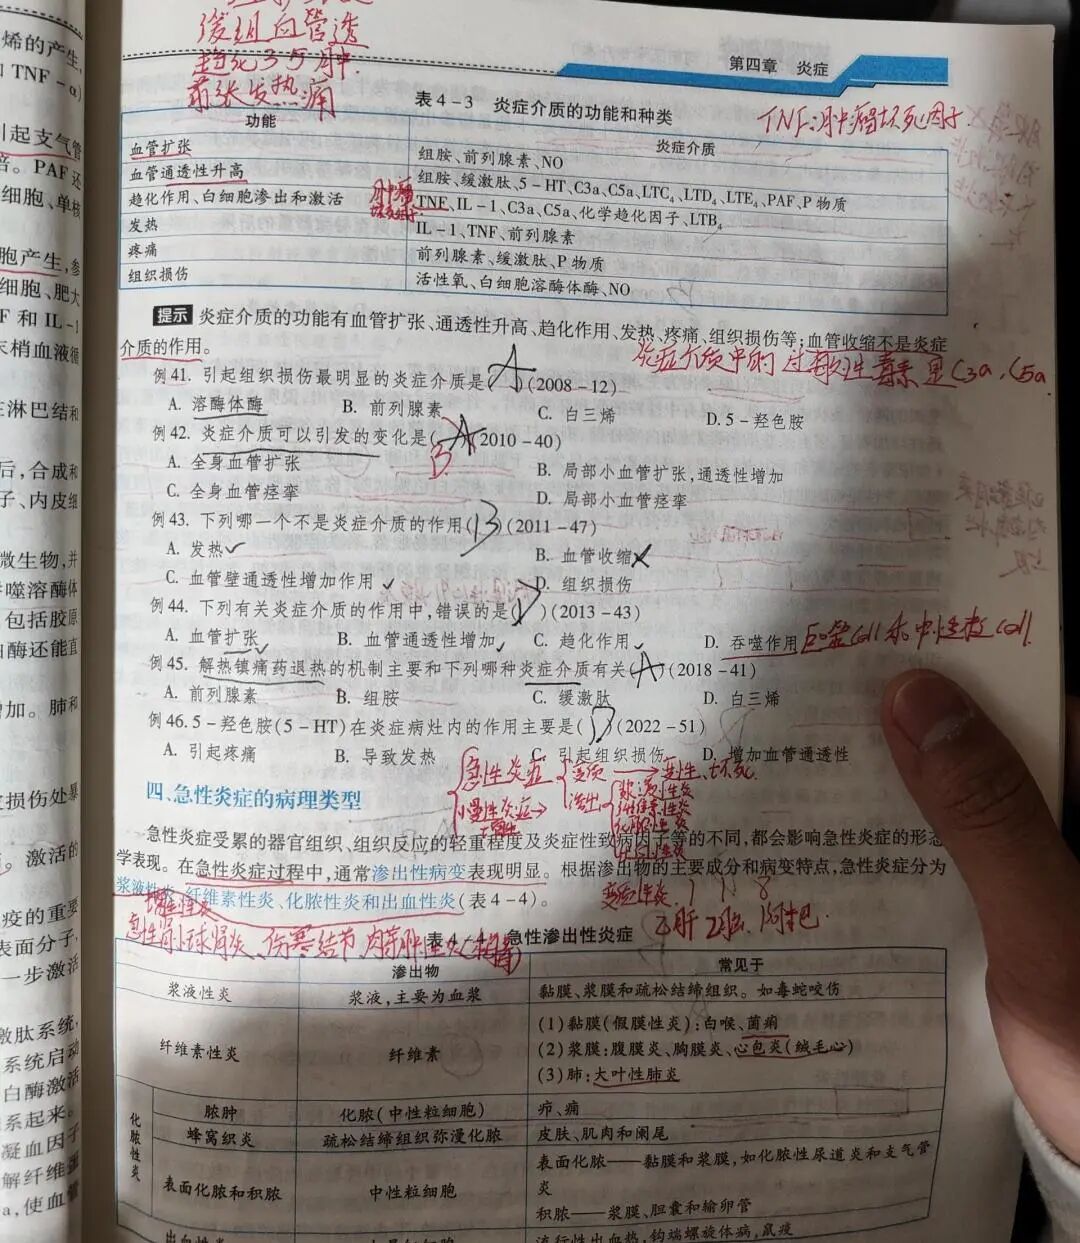 缓组血管透
趋化35肿
前张发热痛
烯的产生,
TNF-α)
引起支气管
倍。PAF还
细胞、单核
胞产生,参
细胞、肥大
F和IL-1
末梢血液循
在淋巴结和
后,合成和
子、内皮细
微生物,并
噬溶酶体
包括胶原
白酶还能直
增加。肺和
损伤处暴
激活的
疫的重要
表面分子,
一步激活
激肽系统,
系统启动
白酶激活
系起来。
凝血因子
解纤维蛋
a,使血管
第四章 炎症
表4-3 炎症介质的功能和种类
TNF:肿瘤坏死因子
功能 炎症介质
血管扩张 组胺、前列腺素、NO
血管通透性升高 组胺、缓激肽、5-HT、C3a、C5a、LTC4、LTD4、LTE4、PAF、P物质
趋化作用、白细胞渗出和激活 肿瘤坏死因子 TNF、IL-1、C3a、C5a、化学趋化因子、LTB4
发热 IL-1、TNF、前列腺素
疼痛 前列腺素、缓激肽、P物质
组织损伤 活性氧、白细胞溶酶体酶、NO
提示 炎症介质的功能有血管扩张、通透性升高、趋化作用、发热、疼痛、组织损伤等;血管收缩不是炎症
介质的作用。
炎症介质中的过敏性毒素是C3a、C5a
例41. 引起组织损伤最明显的炎症介质是(A)(2008-12)
A. 溶酶体酶 B. 前列腺素 C. 白三烯 D. 5-羟色胺
例42. 炎症介质可以引发的变化是(A)(2010-40)
B
A. 全身血管扩张 B. 局部小血管扩张,通透性增加
C. 全身血管痉挛 D. 局部小血管痉挛
例43. 下列哪一个不是炎症介质的作用(B)(2011-47)
A. 发热✓ B. 血管收缩✗
C. 血管壁通透性增加作用✓ D. 组织损伤
例44. 下列有关炎症介质的作用中,错误的是(D)(2013-43)
A. 血管扩张✓ B. 血管通透性增加✓ C. 趋化作用✓ D. 吞噬作用 巨噬cell和中性粒cell
例45. 解热镇痛药退热的机制主要和下列哪种炎症介质有关(A)(2018-41)
A. 前列腺素 B. 组胺 C. 缓激肽 D. 白三烯
例46. 5-羟色胺(5-HT)在炎症病灶内的作用主要是(D)(2022-51)
A. 引起疼痛 B. 导致发热 C. 引起组织损伤 D. 增加血管通透性
急性炎症 变质→变性、坏死
慢性炎症→增生 渗出 浆液性炎
纤维素性炎
化脓性炎
出血性炎
四、急性炎症的病理类型
急性炎症受累的器官组织、组织反应的轻重程度及炎症性致病因子等的不同,都会影响急性炎症的形态
学表现。在急性炎症过程中,通常渗出性病变表现明显。根据渗出物的主要成分和病变特点,急性炎症分为
浆液性炎、纤维素性炎、化脓性炎和出血性炎(表4-4)。
变质性炎
乙肝 乙脑 阿扎巴
增生性炎
急性肾小球肾炎、伤寒结节、肉芽肿性炎
表4-4 急性渗出性炎症
渗出物 常见于
浆液性炎 浆液,主要为血浆 黏膜、浆膜和疏松结缔组织。如毒蛇咬伤
纤维素性炎 纤维素 (1)黏膜(假膜性炎):白喉、菌痢
(2)浆膜:腹膜炎、胸膜炎、心包炎(绒毛心)
(3)肺:大叶性肺炎
化脓性炎 脓肿 化脓(中性粒细胞) 疖、痈
蜂窝织炎 疏松结缔组织弥漫化脓 皮肤、肌肉和阑尾
表面化脓和积脓 中性粒细胞 表面化脓——黏膜和浆膜,如化脓性尿道炎和支气管
炎
积脓——浆膜、胆囊和输卵管
出血性炎 流行性出血热,钩端螺旋体病,鼠疫